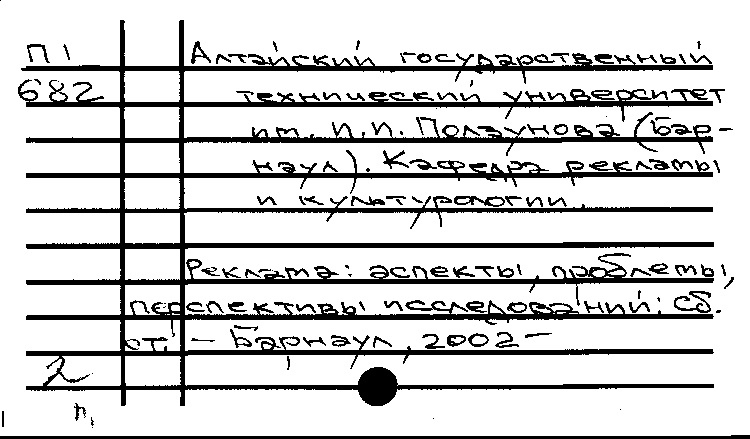 П1 Алтайский государственный
682 технический университет
им. И.И. Ползунова (Бар-
наул). Кафедра рекламы
и культурологии.
Реклама: аспекты, проблемы,
перспективы исследований: Сб.
ст. – Барнаул, 2002 –
2
п.